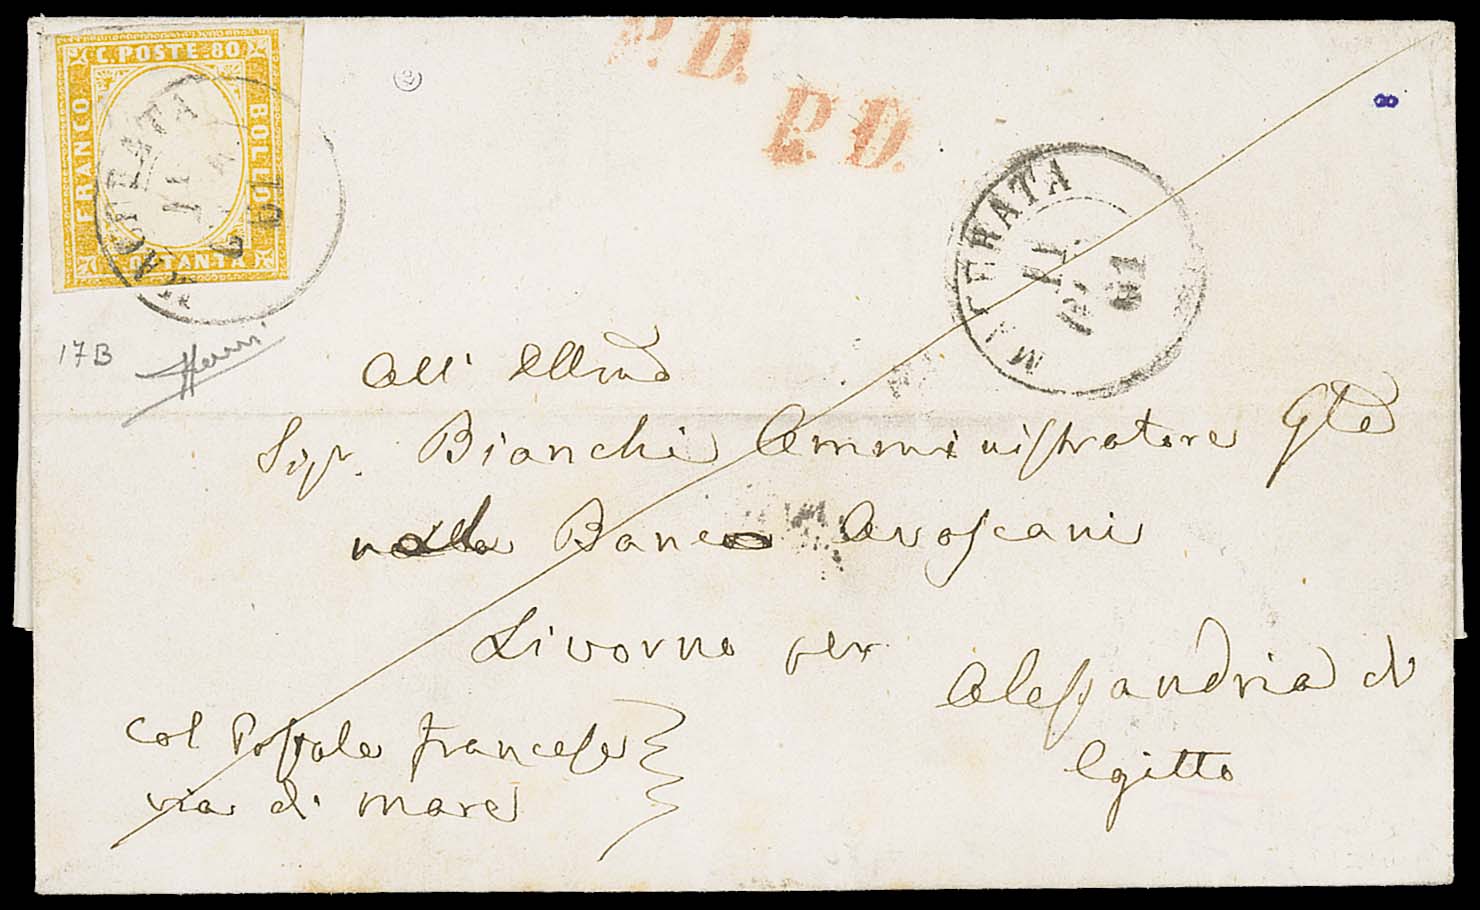 C. POSTE. 80
FRANCO
BOLLO
C. OTTANTA
MACERATA
11
61
P. D.
P. D.
8
MACERATA
11
61
17B
All' Illmo
Sigr. Bianchi Amministratore Gle
nella Banco Avoscani
Livorno per Alessandria di
Egitto
Col Postale francese
via di mare